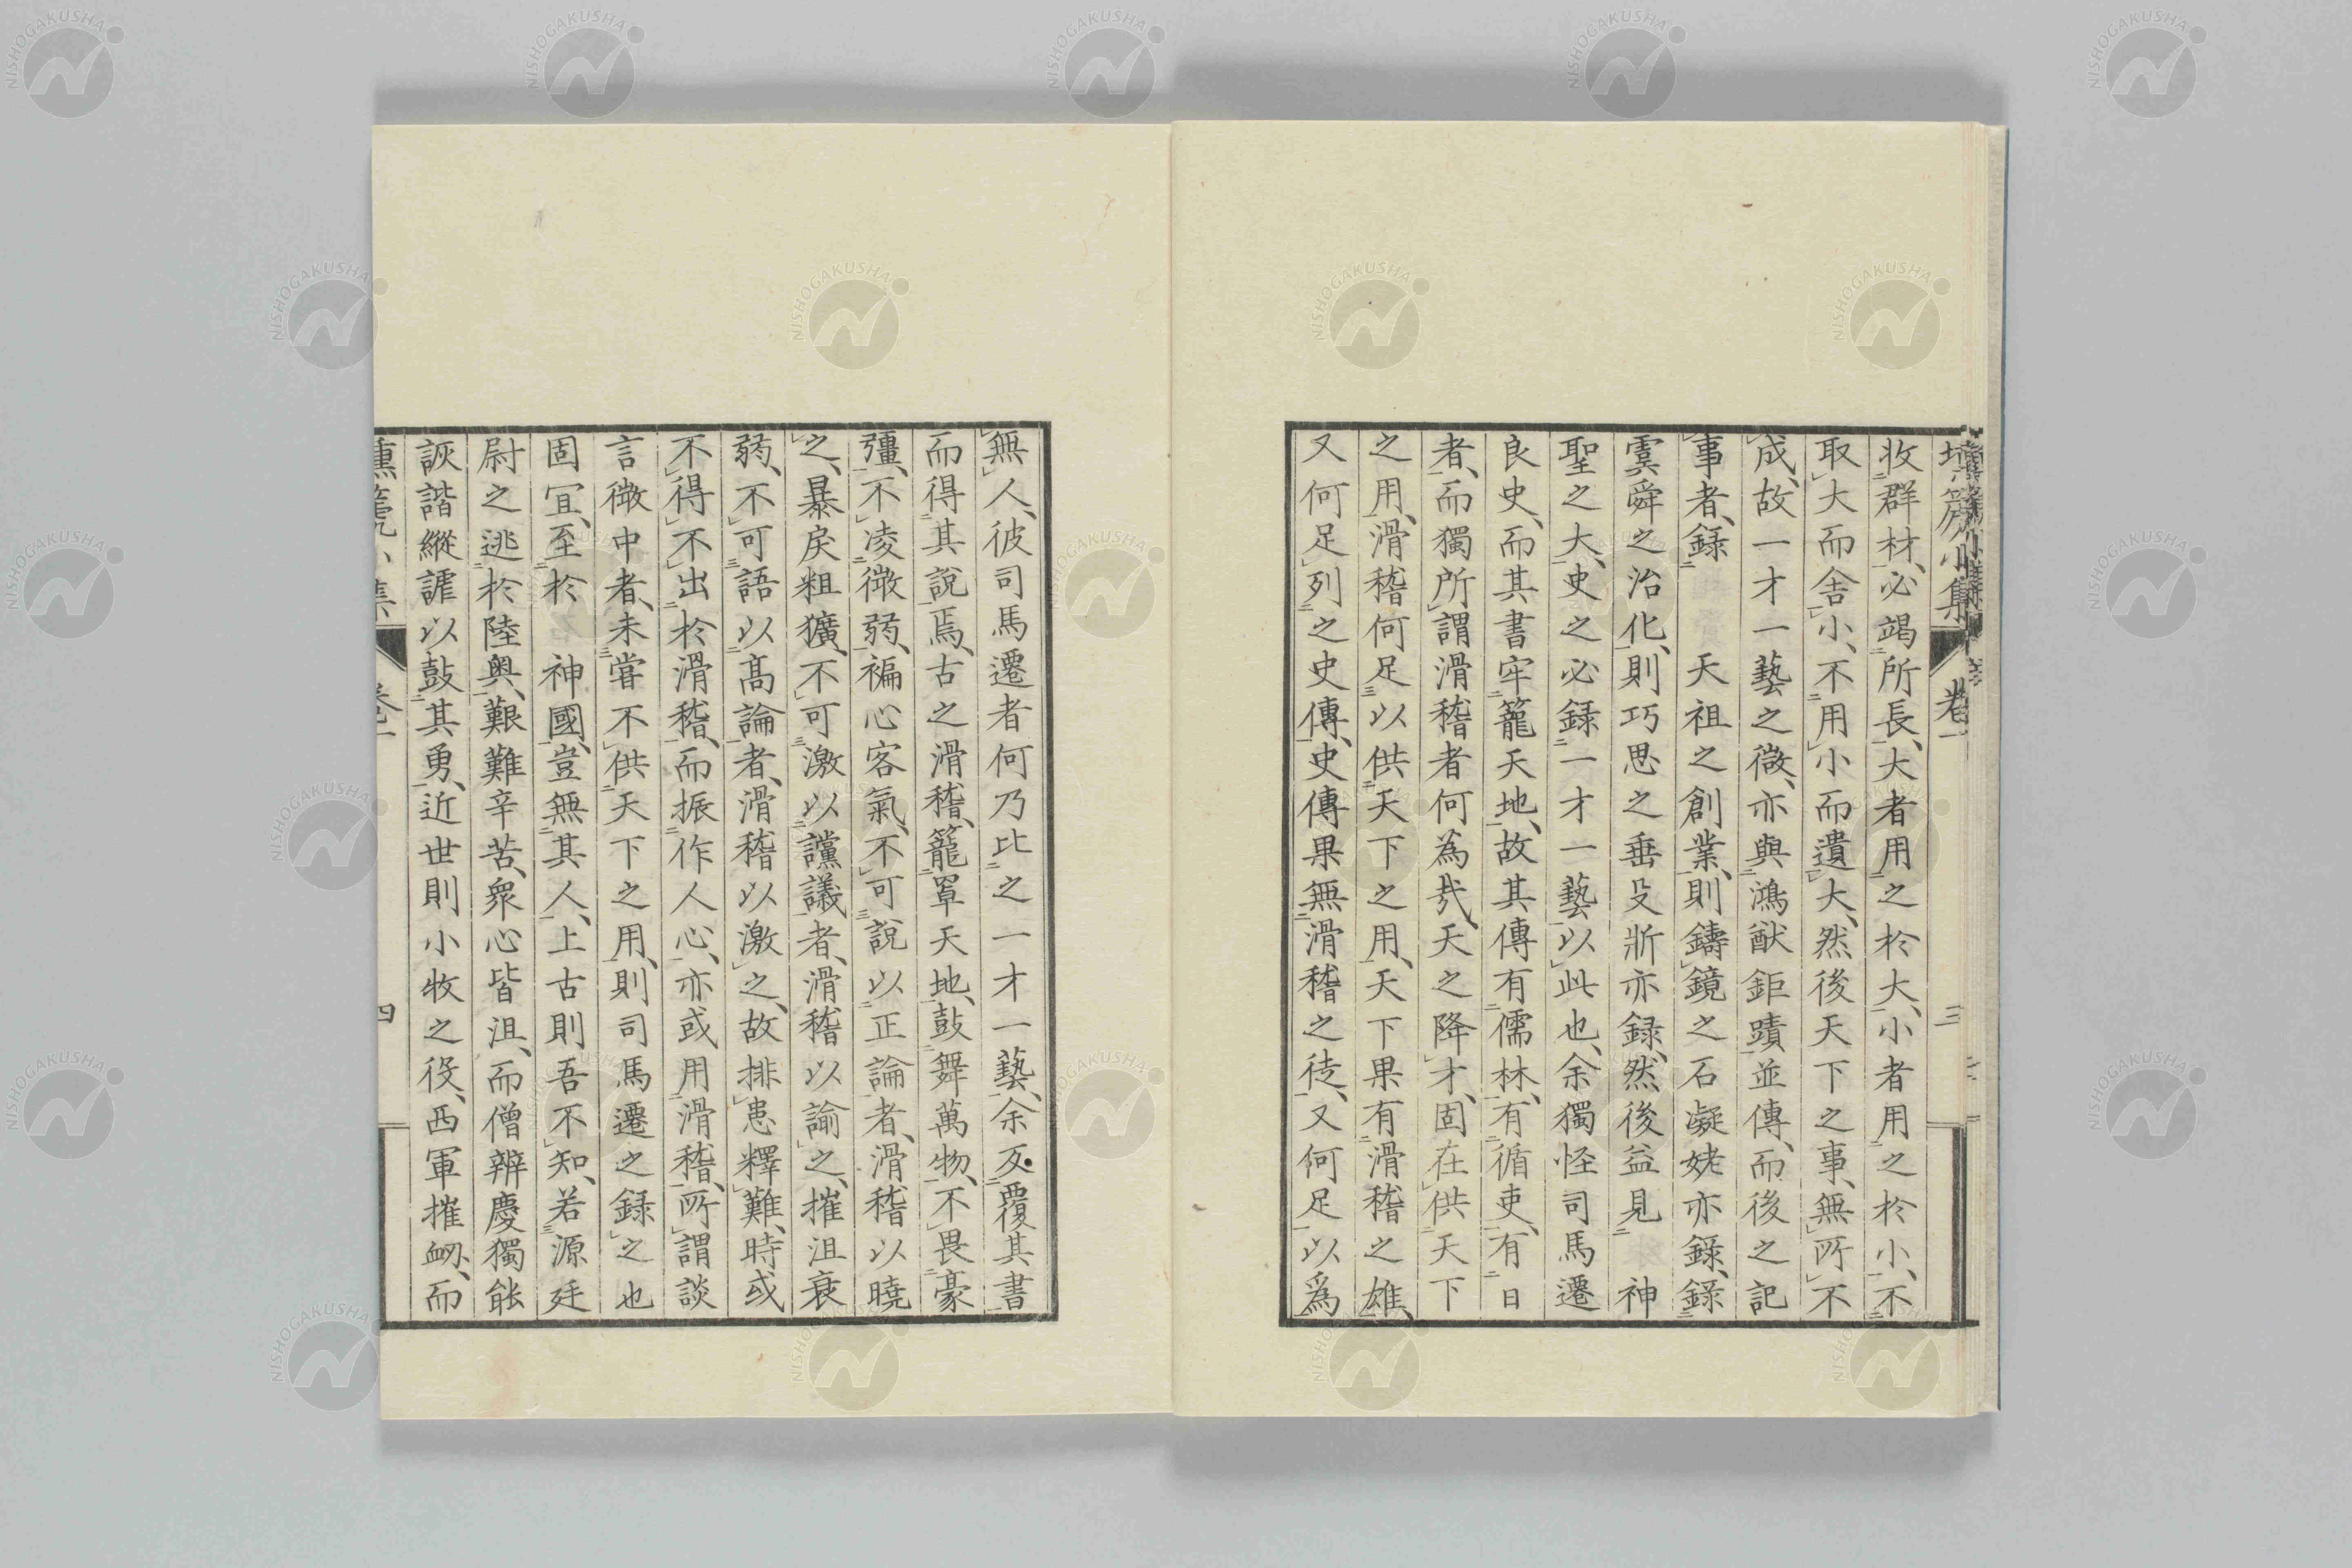 壎篪小集 卷一 三
收群材、必竭所長、大者用之於大、小者用之於小、不
取大而舍小、不用小而遺大、然後天下之事、無所不
成、故一才一藝之微、亦與鴻猷鉅蹟並傳、而後之記
事者、錄 天祖之創業、則鑄鏡之石凝姥亦錄、錄
虞舜之治化、則巧思之垂殳斨亦録、然後益見 神
聖之大、史之必録一才一藝以此也、余獨怪司馬遷
良史、而其書牢籠天地、故其傳有儒林、有循吏、有日
者、而獨所謂滑稽者何為哉、天之降才、固在供天下
之用、滑稽何足以供天下之用、天下果有滑稽之雄、
又何足列之史傳、史傳果無滑稽之徒、又何足以爲
無人、彼司馬遷者何乃比之一才一藝、余反覆其書
而得其説焉、古之滑稽、籠罩天地、鼓舞萬物、不畏豪
彊、不凌微弱、褊心客氣、不可説以正論者、滑稽以曉
之、暴戻粗獷、不可激以讜議者、滑稽以諭之、摧沮衰
弱、不可語以高論者、滑稽以激之、故排患釋難、時或
不得不出於滑稽、而振作人心、亦或用滑稽、所謂談
言微中者、未嘗不供天下之用、則司馬遷之録之也
固宜、至於 神國、豈無其人、上古則吾不知、若源廷
尉之逃於陸奥、艱難辛苦、衆心皆沮、而僧辨慶獨能
詼諧縱謔以鼓其勇、近世則小牧之役、西軍摧衂、而
壎篪小集 卷一 四
NISHOGAKUSHA